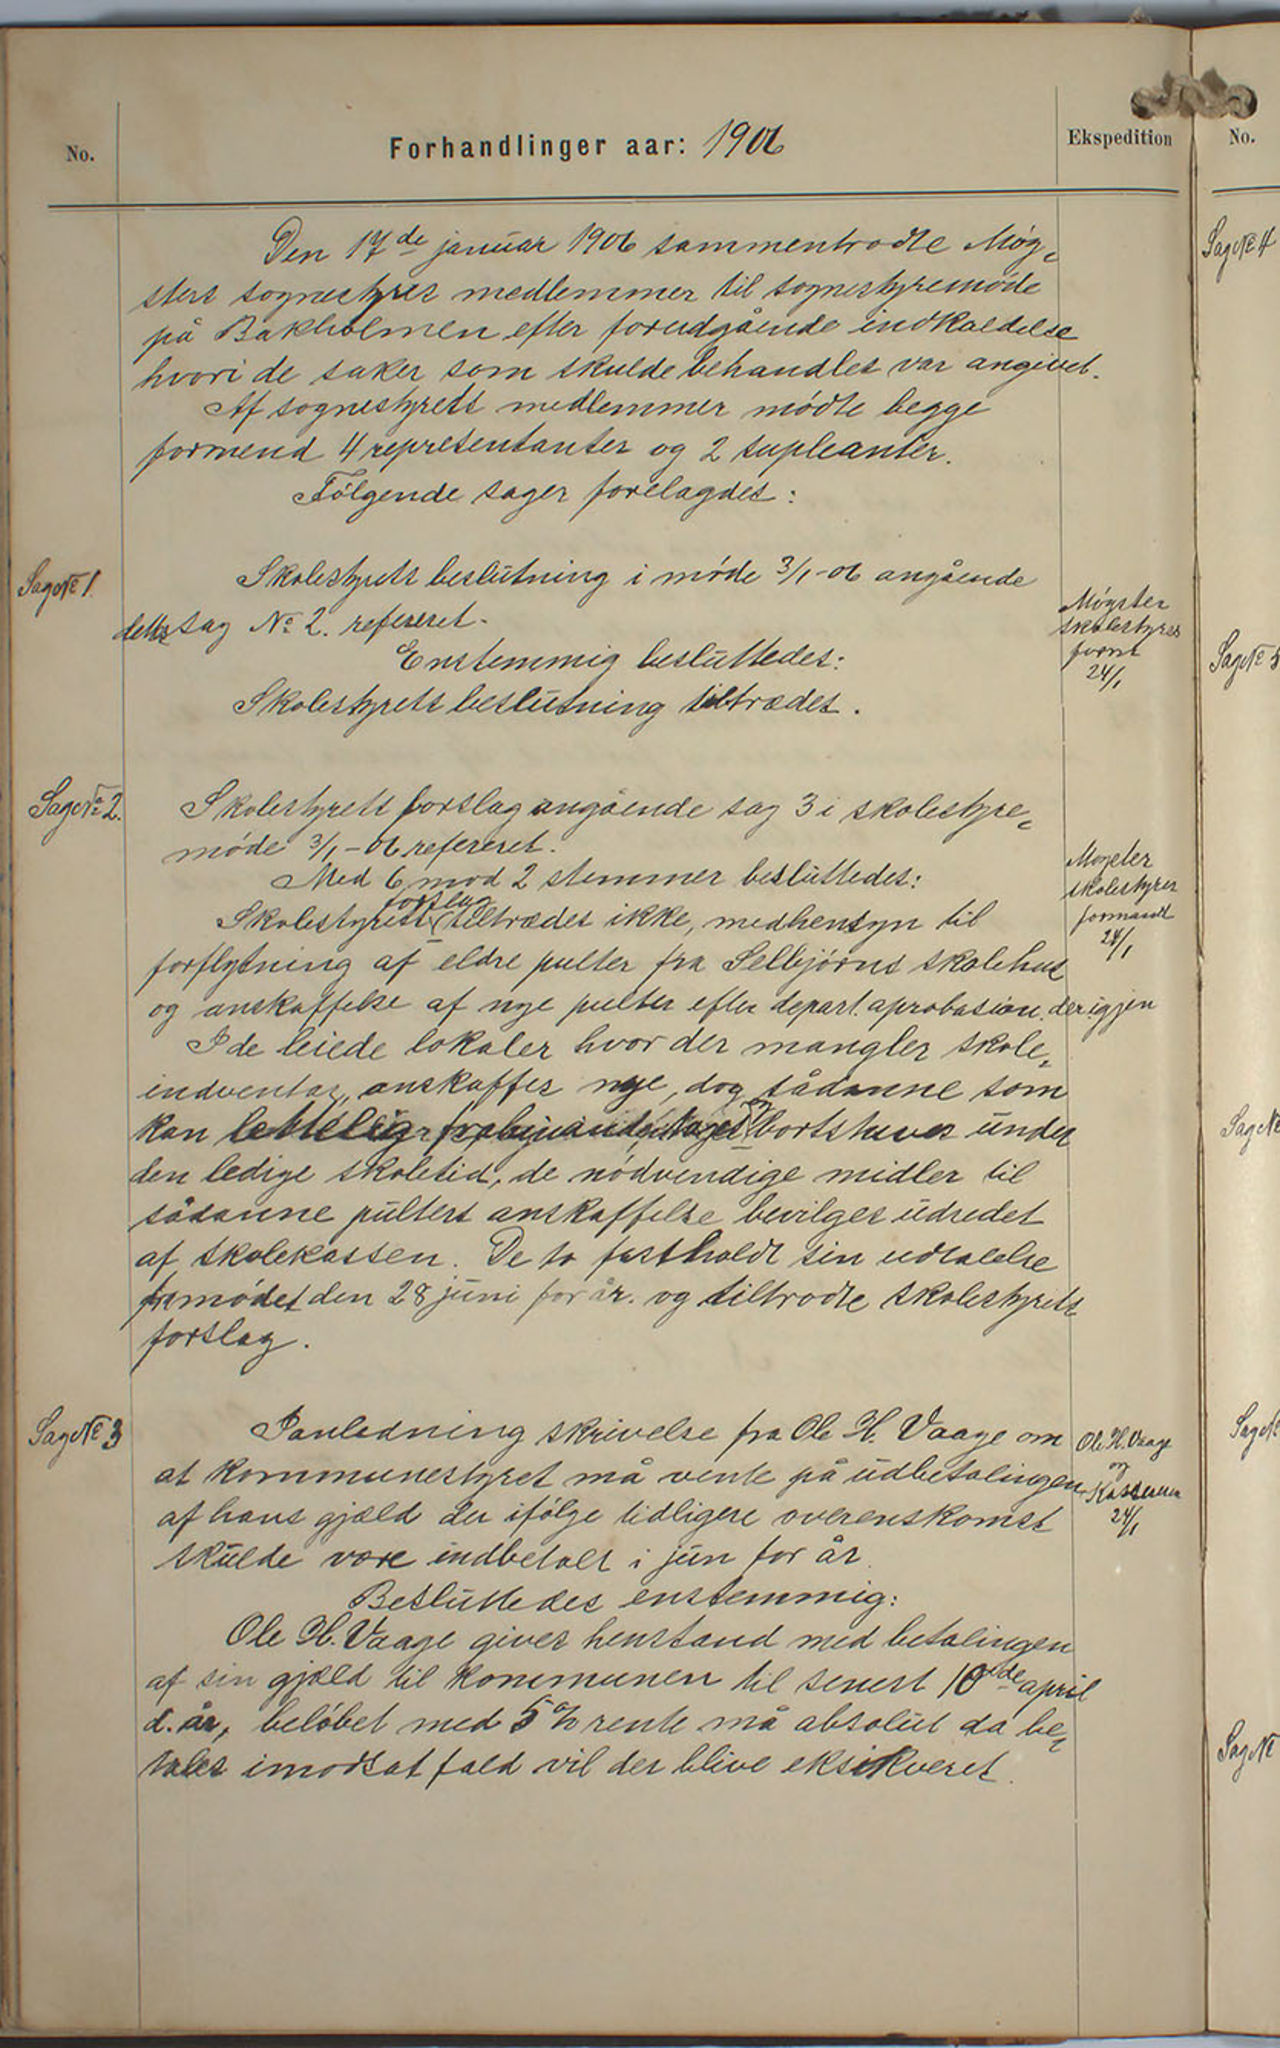 No.
Forhandlinger aar: 1906
Ekspedition
No.
Den 17de januar 1906 sammentrodte Møg-
sters sognestyres medlemmer til sognestyremøde
på Bakholmen efter forudgående indkaldelse
hvori de saker som skulde behandles var angivet.
Af sognestyrets medlemmer mødte begge
formend 4 representanter og 2 supleanter.
Følgende sager forelagdes:
Sag No 1
Skolestyrets beslutning i møde 3/1-06 angående
dettes sag No 2. refereret.
Enstemmig besluttedes:
Skolestyrets beslutning tiltrædes.
Møgster
skolestyres
formd
24/1
Sag No 2.
Skolestyrets forslag angående sag 3 i skolestyre-
møde 3/1-06 refereret.
Med 6 mod 2 stemmer besluttedes:
forslag
Skolestyrets tiltrædes ikke, medhensyn til
forflytning af eldre pulter fra Selbjørns skolehus
og anskaffelse af nye pulter efter depart. aprobasion der igjen
I de leiede lokaler hvor der mangler skole-
indventar, anskaffes nye, dog sådanne som
kan lettelig tages og bortstuves under
den ledige skoletid, de nødvendige midler til
sådanne pulters anskaffelse bevilges udredet
af skolekassen. De to fastholdt sin udtalelse
fra mødet den 28 juni for år. og tiltrodte skolestyrets
forslag.
Møgster
skolestyres
formand
24/1
Sag No 3
Ianledning skrivelse fra Ole H. Vaage om
at kommunestyret må vente på udbetalingen
af hans gjæld der ifølge tidligere overenskomst
skulde være indbetalt i jun for år.
Besluttedes enstemmig:
Ole H. Vaage gives henstand med betalingen
af sin gjæld til kommunen til senest 10de april
d. år, beløbet med 5 % rente må absolut da be-
tales imodsat fald vil der blive eksikveret.
Ole H. Vaage
og
Kasseren
24/1
Sag No 4
Sag No 5
Sag No
Sag No
Sag No